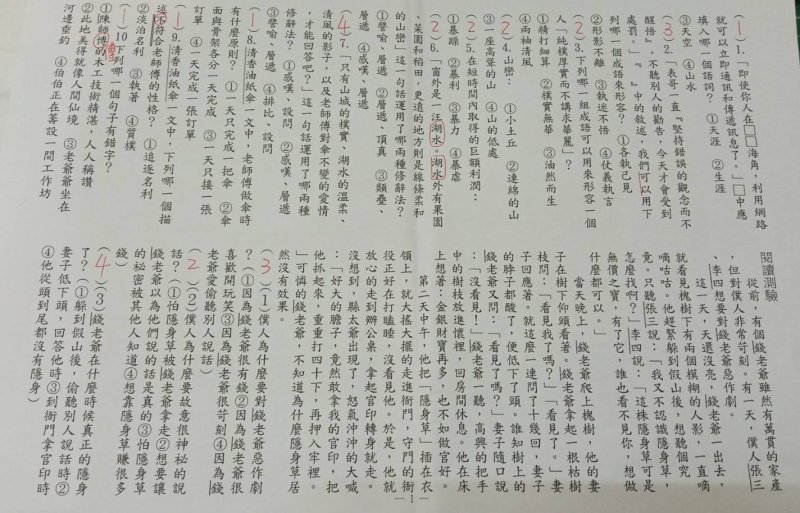 (1)1.「即使你人在□□海角,利用網路
就可以立即通訊和傳遞訊息了。」□中應
填入哪一個語詞?①天涯 ②生涯
③天空 ④山水
(3)2.「表哥一直『堅持錯誤的觀念而不
醒悟』,不聽別人的勸告,今天才會受到
處罰。」『 』中的敘述,我們可以用下
列哪一個成語來形容?①各執己見
②形影不離 ③執迷不悟 ④仗義執言
(2)3.下列哪一組成語可以用來形容一個
人「純樸厚實而不講求華麗」?
①精打細算 ②樸實無華 ③油然而生
④兩袖清風
(2)4.山巒:①小土丘 ②連綿的山
③一座高聳的山 ④山的低處
(2)5.在短時間內取得的巨額利潤:
①暴躁 ②暴利 ③暴力 ④暴虐
(2)6.「窗外是一汪湖水。湖水外有果園
、菜園和稻田,更遠的地方則是線條柔和
的山巒」這一句話運用了哪兩種修辭法?
①譬喻、層遞 ②層遞、頂真 ③類疊、
層遞 ④感嘆、層遞
(4)7.「只有山城的樸實、湖水的溫柔、
清風的影子,以及老師傅對傘不變的愛情
,才能回答吧?」這一句話運用了哪兩種
修辭法?①感嘆、設問 ②感嘆、層遞
③譬喻、層遞 ④排比、設問
(1)8.清香油紙傘一文中,老師傅做傘時
有什麼原則?①一天只完成一把傘 ②傘
面與骨架各分一天完成 ③一天只接一張
訂單 ④一天完成一張訂單
(1)9.清香油紙傘一文中,下列哪一個描
述不符合老師傅的性格?①追逐名利
②淡泊名利 ③執著 ④質樸
(1)10.下列哪一個句子有錯字?
①陳師博的木工技術精湛,人人稱讚
②此地美得就像人間仙境 ③老爺爺坐在
河邊垂釣 ④伯伯正在籌設一間工作坊
閱讀測驗
從前,有個錢老爺雖然有萬貫的家產
,但對僕人非常苛刻。有一天,僕人張三
、李四想要對錢老爺惡作劇。
這一天,天還沒亮,錢老爺一出去,
就看見槐樹下有兩個模糊的人影,一直嘀
嘀咕咕。他趕緊躲到假山後,想聽個究
竟。只聽張三說:「我又不認識隱身草,
怎麼找啊?」李四說:「這株隱身草可是
無價之寶,有了它,誰也看不見你,想做
什麼都可以。」
當天晚上,錢老爺爬上槐樹,他的妻
子在樹下仰頭看著。錢老爺拿起一根枯樹
枝問:「看見我了嗎?」「看見了。」妻
子回應著。就這麼一連問了十幾回,妻子
的脖子都酸了,便低下了頭。誰知樹上的
錢老爺又問:「看見了嗎?」妻子隨口說
:「沒看見!」錢老爺一聽,高興的把手
中的樹枝放進懷裡,回房間休息。他在床
上想著:金銀財寶再多,也不如做官好。
第二天中午,他把「隱身草」插在衣
領上,就大搖大擺的走進衙門,守門的衙
役正好在打瞌睡,沒看見他。於是,他就
放心的走到辦公桌,拿起官印轉身就走。
沒想到,縣太爺出現了,怒氣沖沖的大喊
:「好大的膽子,竟然敢拿我的官印,把
他抓起來,重重打四十下,再押入牢裡。
」可憐的錢老爺,不知道為什麼隱身草居
然沒有效果。
(3)(1)僕人為什麼要對錢老爺惡作劇
?①因為錢老爺很有錢②因為錢老爺很
喜歡開玩笑③因為錢老爺很苛刻④因為錢
老爺愛偷聽別人說話
(2)(2)僕人為什麼要故意很神祕的說
話?①怕隱身草被錢老爺拿走②想要讓
錢老爺以為他們說的話是真的③怕隱身草
的祕密被其他人知道④想靠隱身草賺很多
錢
(4)(3)錢老爺在什麼時候真正的隱身
了?①躲到假山後,偷聽別人說話時②
妻子低下頭,回答他時③到衙門拿官印時
④他從頭到尾都沒有隱身
1